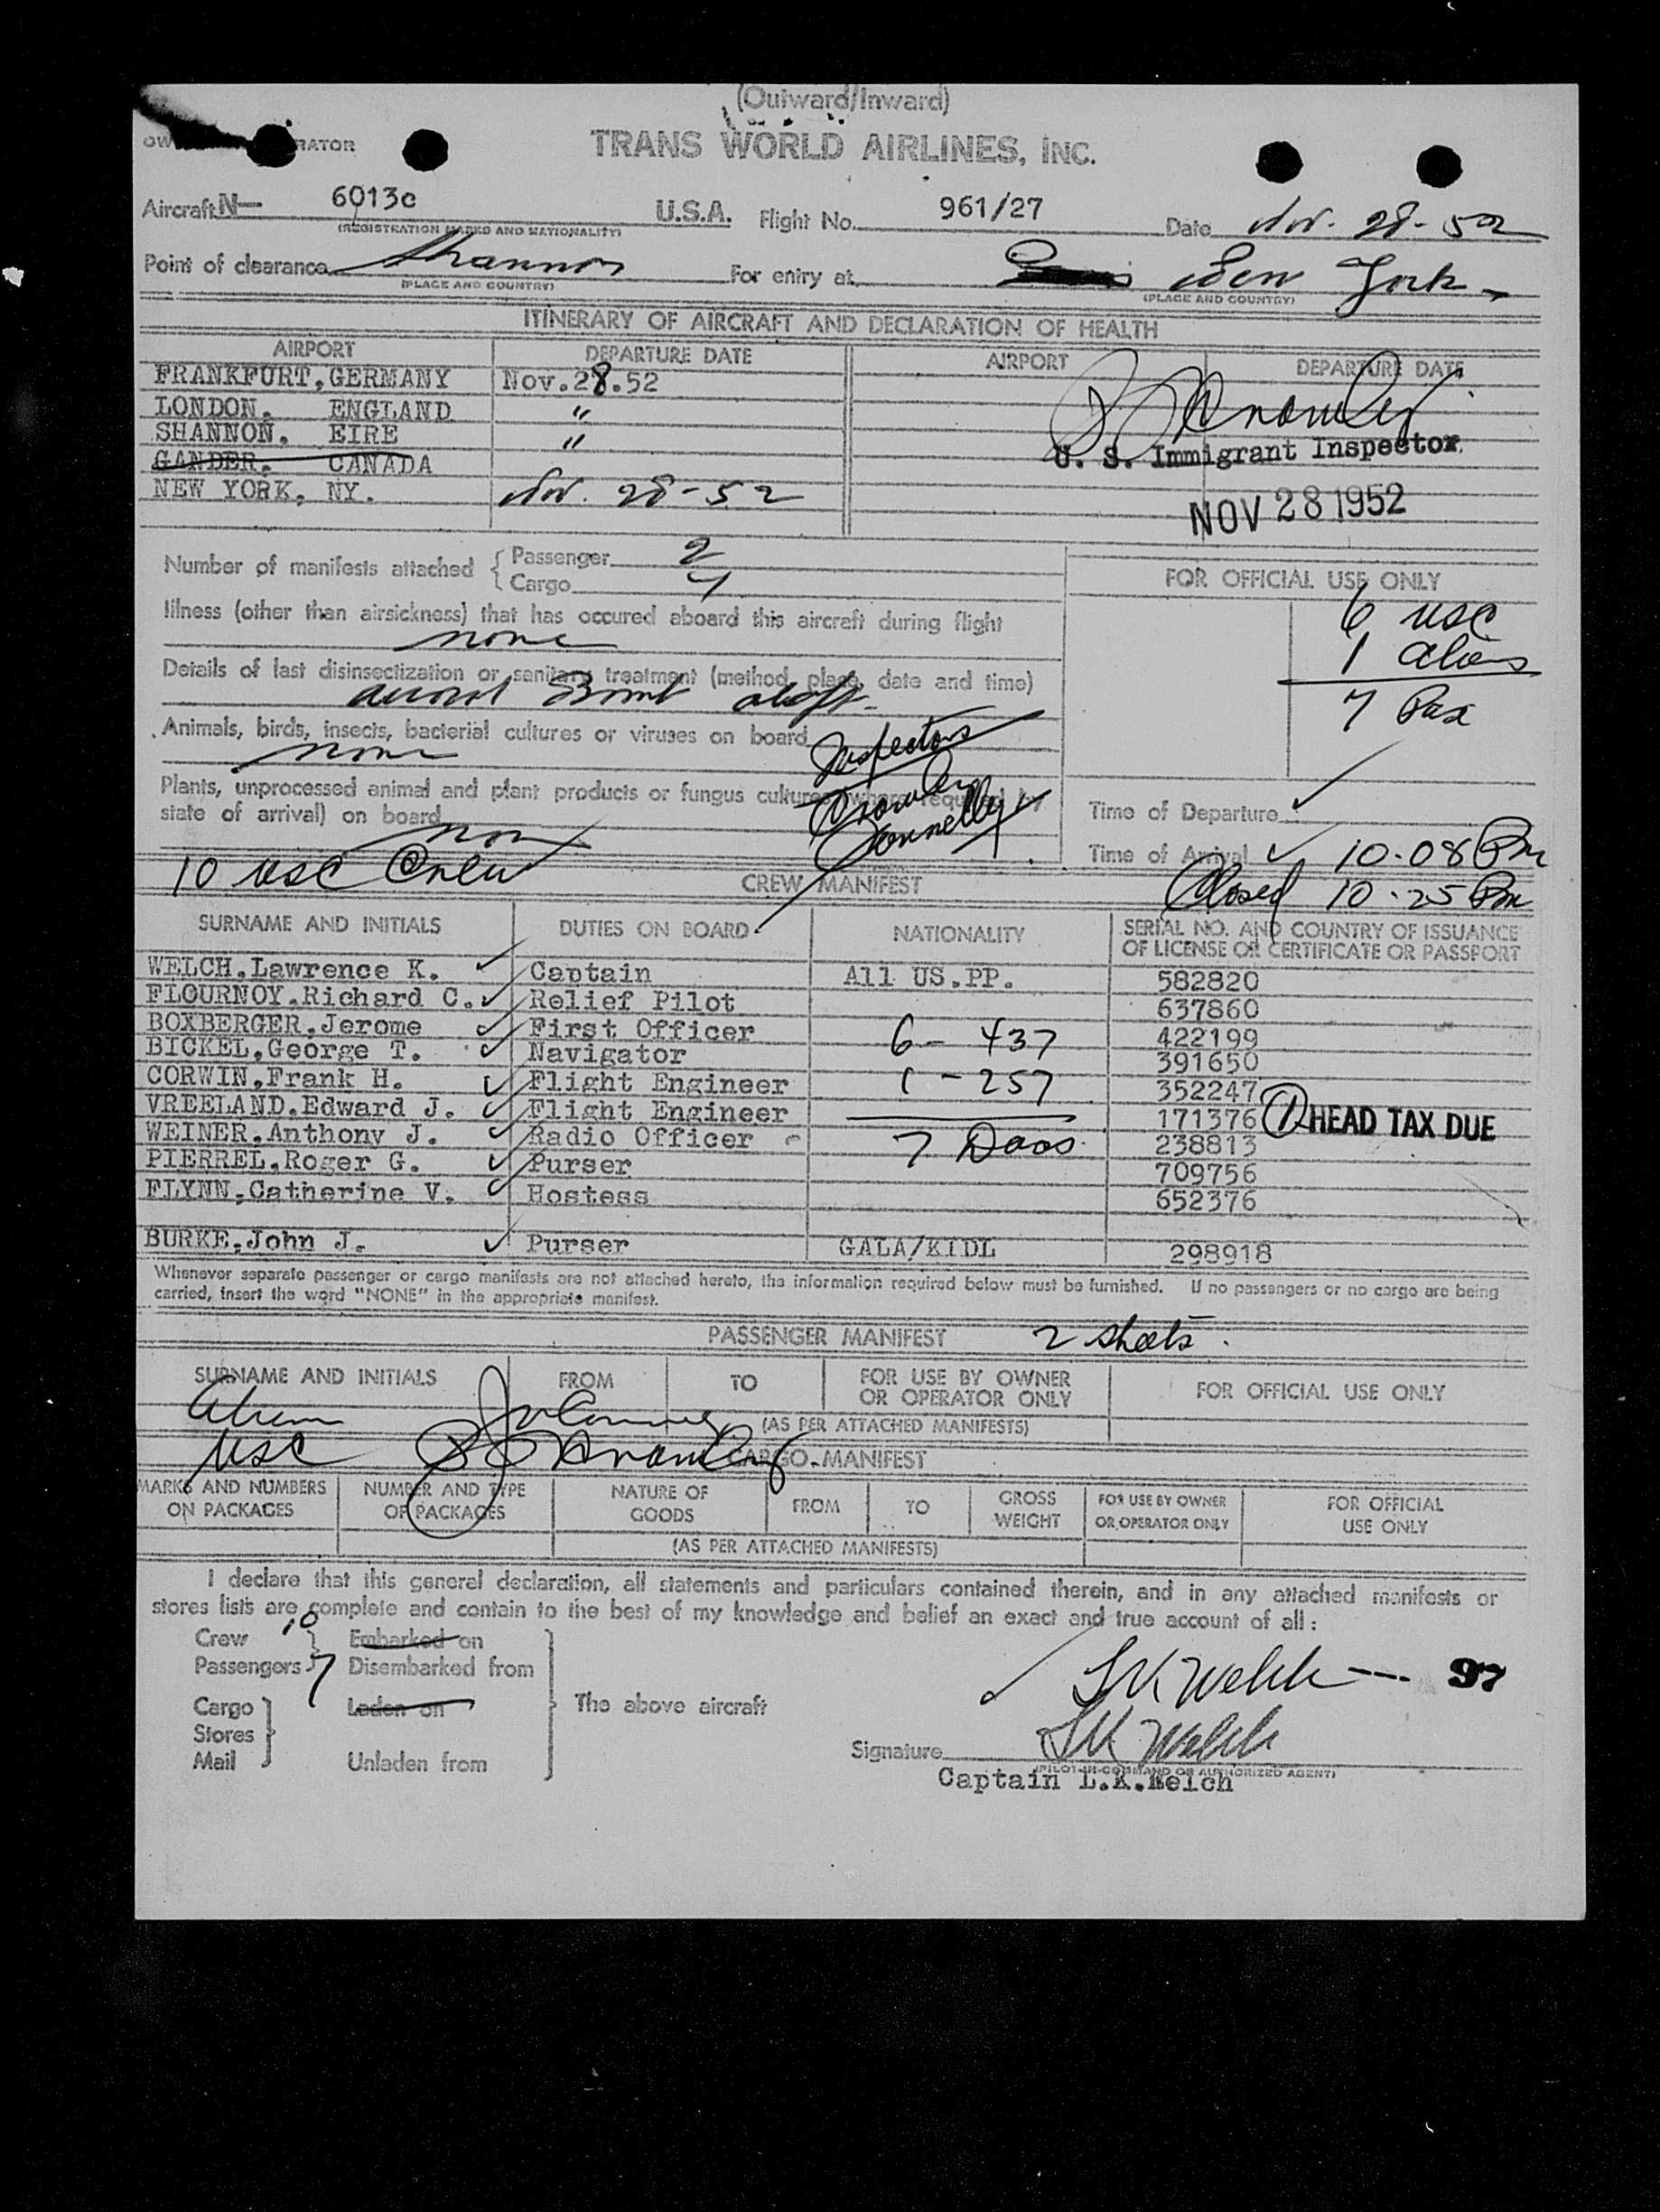 (Outward/Inward)
TRANS WORLD AIRLINES, INC.
Aircraft N— 6013c U.S.A. Flight No. 961/27 Date Nov. 28-52
(REGISTRATION MARKS AND NATIONALITY)
Point of clearance Shannon For entry at New York
(PLACE AND COUNTRY) (PLACE AND COUNTRY)
ITINERARY OF AIRCRAFT AND DECLARATION OF HEALTH
AIRPORT DEPARTURE DATE AIRPORT DEPARTURE DATE
FRANKFURT, GERMANY Nov.28.52
LONDON. ENGLAND "
SHANNON. EIRE "
GANDER. CANADA
U. S. Immigrant Inspector
NEW YORK, NY. Nov. 28-52
NOV 28 1952
Number of manifests attached { Passenger 2
Cargo 4
FOR OFFICIAL USE ONLY
6 USC
1 Alien
7 Pax
Illness (other than airsickness) that has occured aboard this aircraft during flight
none
Details of last disinsectization or sanitary treatment (method, place, date and time)
Bomb aloft
Animals, birds, insects, bacterial cultures or viruses on board
none
Inspectors
Crowley
Connelly
Plants, unprocessed animal and plant products or fungus cultures (where required by
state of arrival) on board
non
Time of Departure
Time of Arrival 10.08 Pm
10 USC Crew CREW MANIFEST Closed 10.25 Pm
SURNAME AND INITIALS DUTIES ON BOARD NATIONALITY SERIAL NO. AND COUNTRY OF ISSUANCE
OF LICENSE OR CERTIFICATE OR PASSPORT
WELCH.Lawrence K. Captain All US.PP. 582820
FLOURNOY.Richard C. Relief Pilot 637860
BOXBERGER.Jerome First Officer 6- 437 422199
BICKEL,George T. Navigator 391650
CORWIN,Frank H. Flight Engineer 1-257 352247
VREELAND.Edward J. Flight Engineer 171376 1 HEAD TAX DUE
WEINER.Anthony J. Radio Officer 7 238813
PIERREL.Roger G. Purser 709756
FLYNN.Catherine V. Hostess 652376
BURKE.John J. Purser GALA/KIDL 298918
Whenever separate passenger or cargo manifests are not attached hereto, the information required below must be furnished. If no passengers or no cargo are being
carried, insert the word "NONE" in the appropriate manifest.
PASSENGER MANIFEST 2 sheets.
SURNAME AND INITIALS FROM TO FOR USE BY OWNER
OR OPERATOR ONLY FOR OFFICIAL USE ONLY
Alien
(AS PER ATTACHED MANIFESTS)
USC CARGO MANIFEST
MARKS AND NUMBERS
ON PACKAGES NUMBER AND TYPE
OF PACKAGES NATURE OF
GOODS FROM TO GROSS
WEIGHT FOR USE BY OWNER
OR OPERATOR ONLY FOR OFFICIAL
USE ONLY
(AS PER ATTACHED MANIFESTS)
I declare that this general declaration, all statements and particulars contained therein, and in any attached manifests or
stores lists are complete and contain to the best of my knowledge and belief an exact and true account of all:
Crew 10 Embarked on
Passengers 7 Disembarked from
Cargo Laden on The above aircraft
Stores
Mail Unladen from
LK Welch --- 97
Signature LK Welch
(PILOT-IN-COMMAND OR AUTHORIZED AGENT)
Captain L.K.Welch